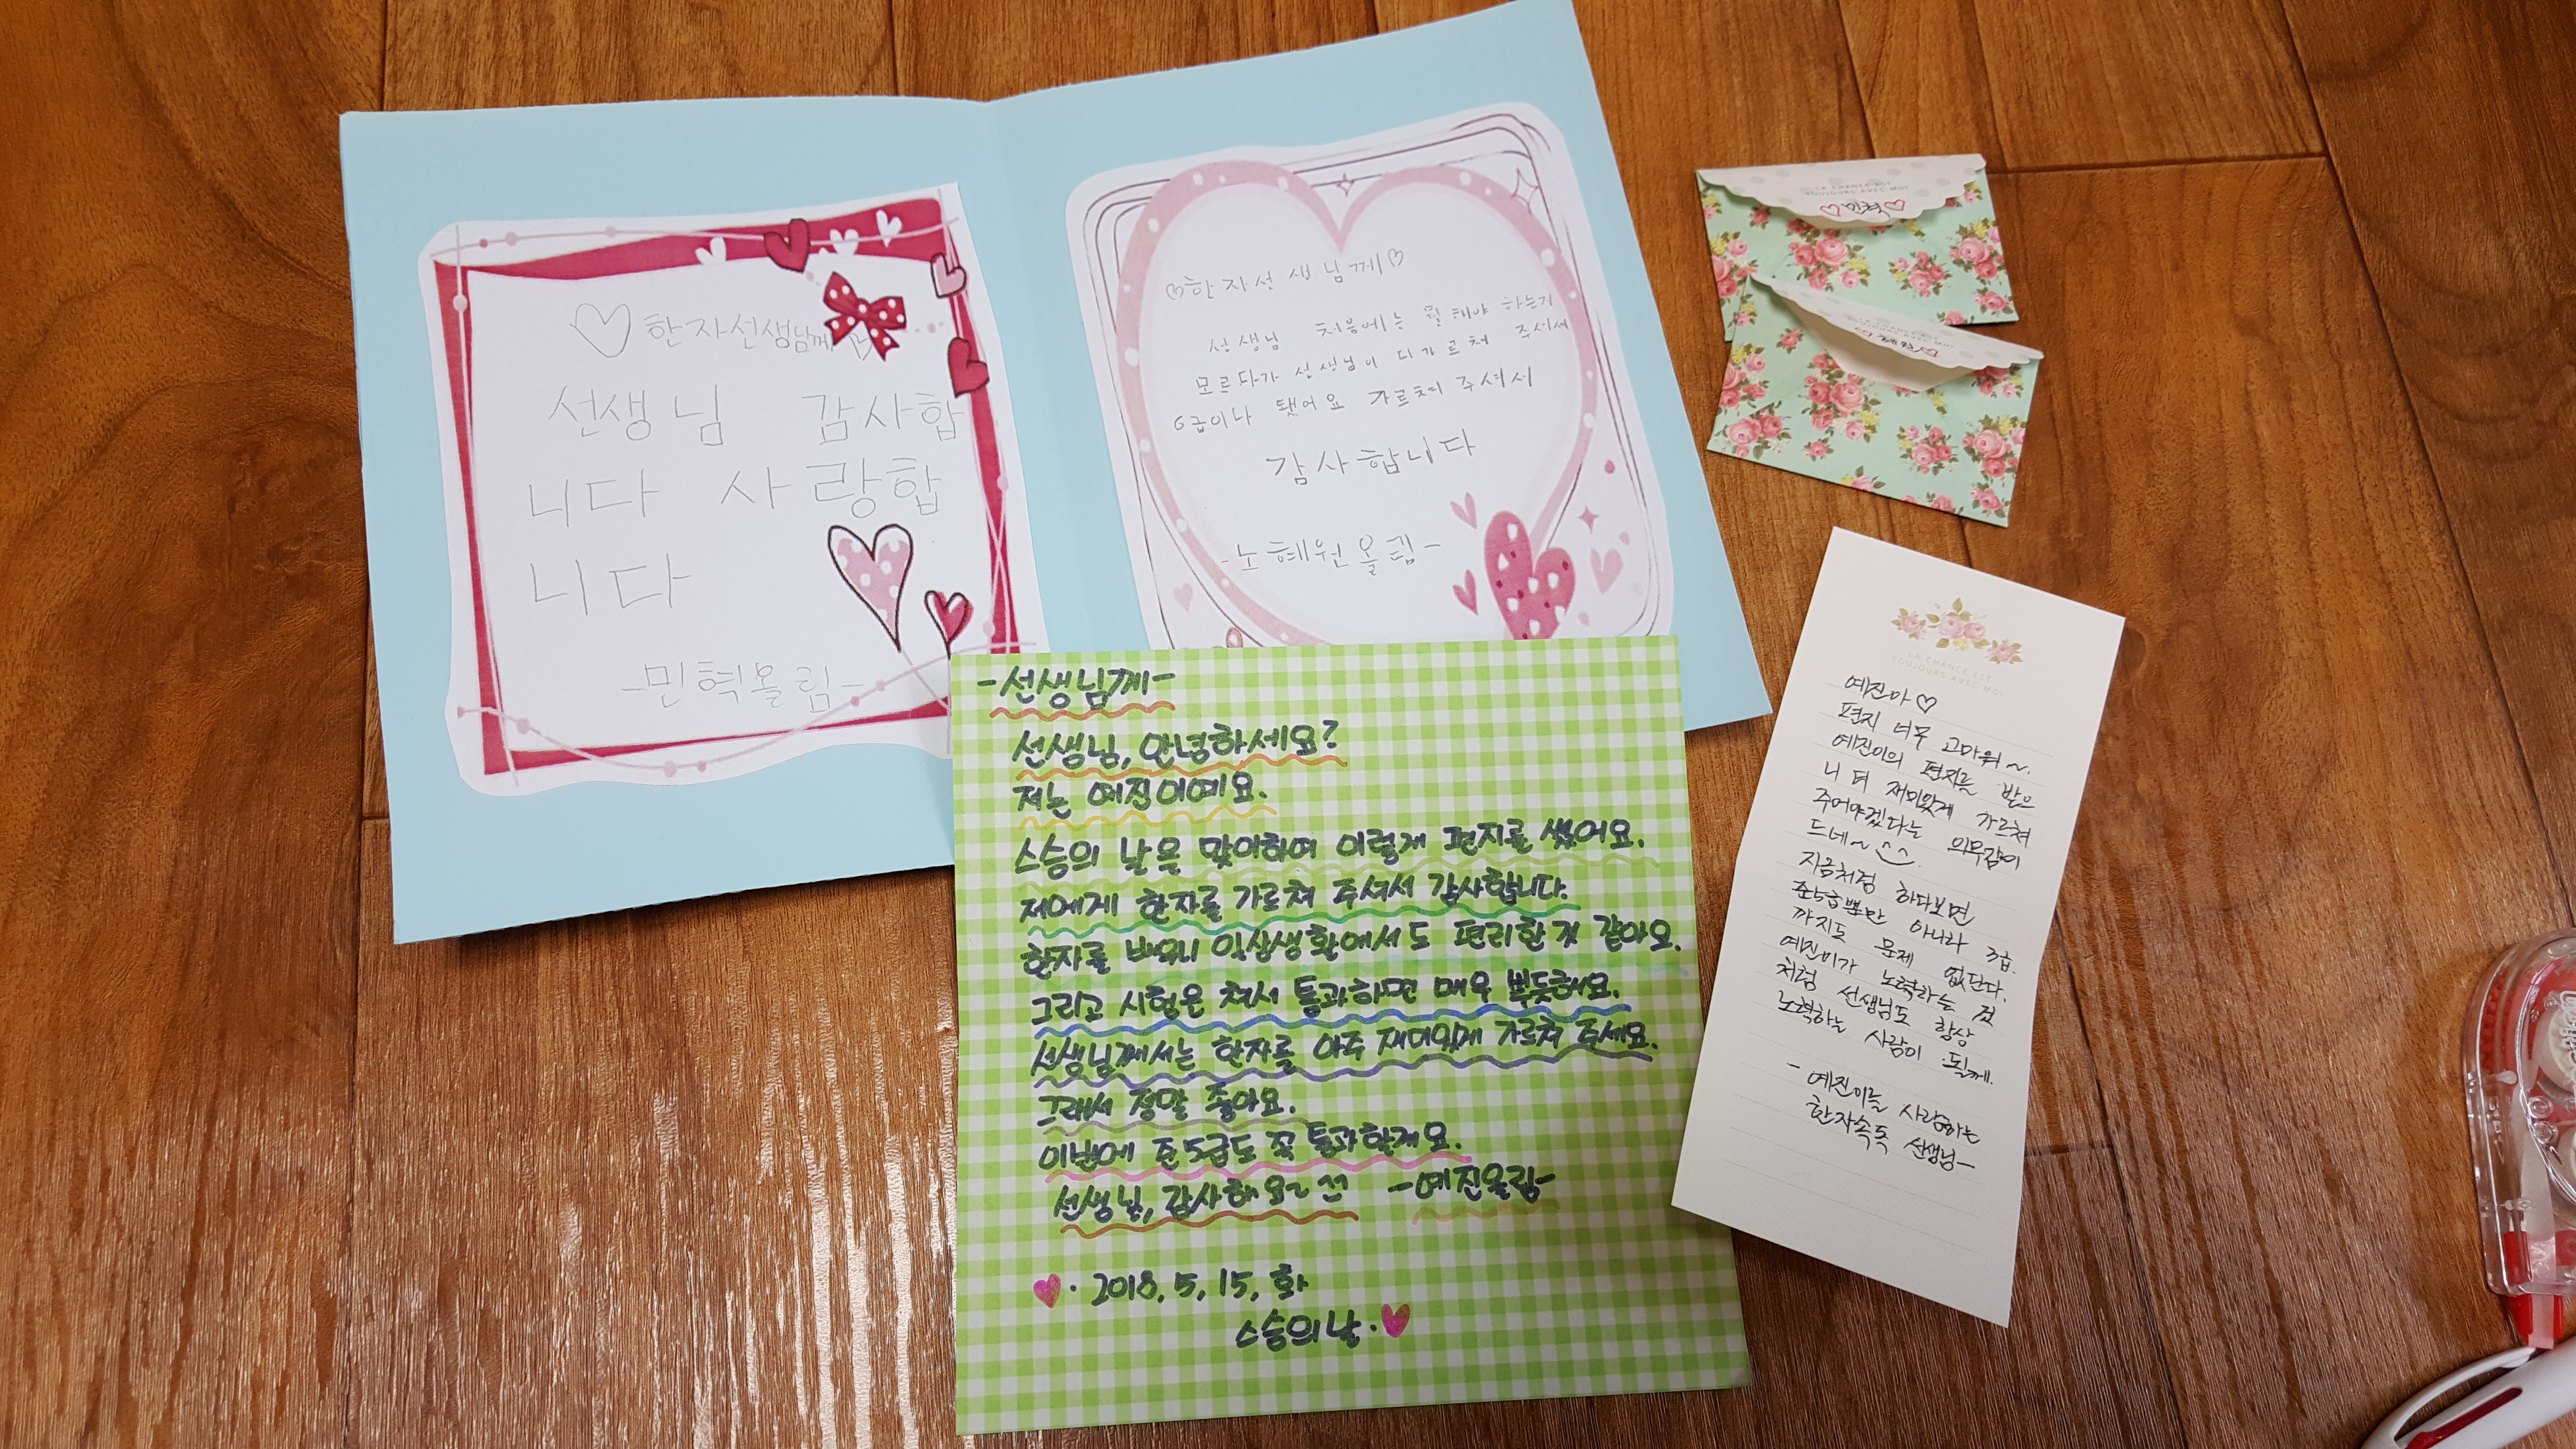 ♡한자선생님께♡
선생님 감사합
니다 사랑합
니다
-민혁올림-
♡한자선생님께♡
선생님 처음에는 뭘 해야 하는지
모르다가 선생님이 다 가르쳐 주셔서
6급이나 됐어요 가르쳐 주셔서
감사합니다
-노혜원올림-
LA CHANCE EST
TOUJOURS AVEC MOI
♡민혁♡
-선생님께-
선생님, 안녕하세요?
저는 예진이예요.
스승의 날을 맞이하여 이렇게 편지를 썼어요.
저에게 한자를 가르쳐 주셔서 감사합니다.
한자를 배우니 일상생활에서도 편리한 것 같아요.
그리고 시험을 쳐서 통과하면 매우 뿌듯해요.
선생님께서는 한자를 아주 재미있게 가르쳐 주세요.
그래서 정말 좋아요.
이번에 준5급도 꼭 통과할게요.
선생님, 감사해요~ ^^ -예진올림-
♥· 2018, 5, 15, 화
스승의 날·♥
LA CHANCE EST
TOUJOURS AVEC MOI
예진아♡
편지 너무 고마워~.
예진이의 편지를 받으
니 더 재미있게 가르쳐
주어야겠다는 의무감이
드네~ ^^.
지금처럼 하다보면
준5급뿐만 아니라 3급
까지도 문제 없단다.
예진이가 노력하는 것
처럼 선생님도 항상
노력하는 사람이 될께.
- 예진이를 사랑하는
한자속독 선생님-